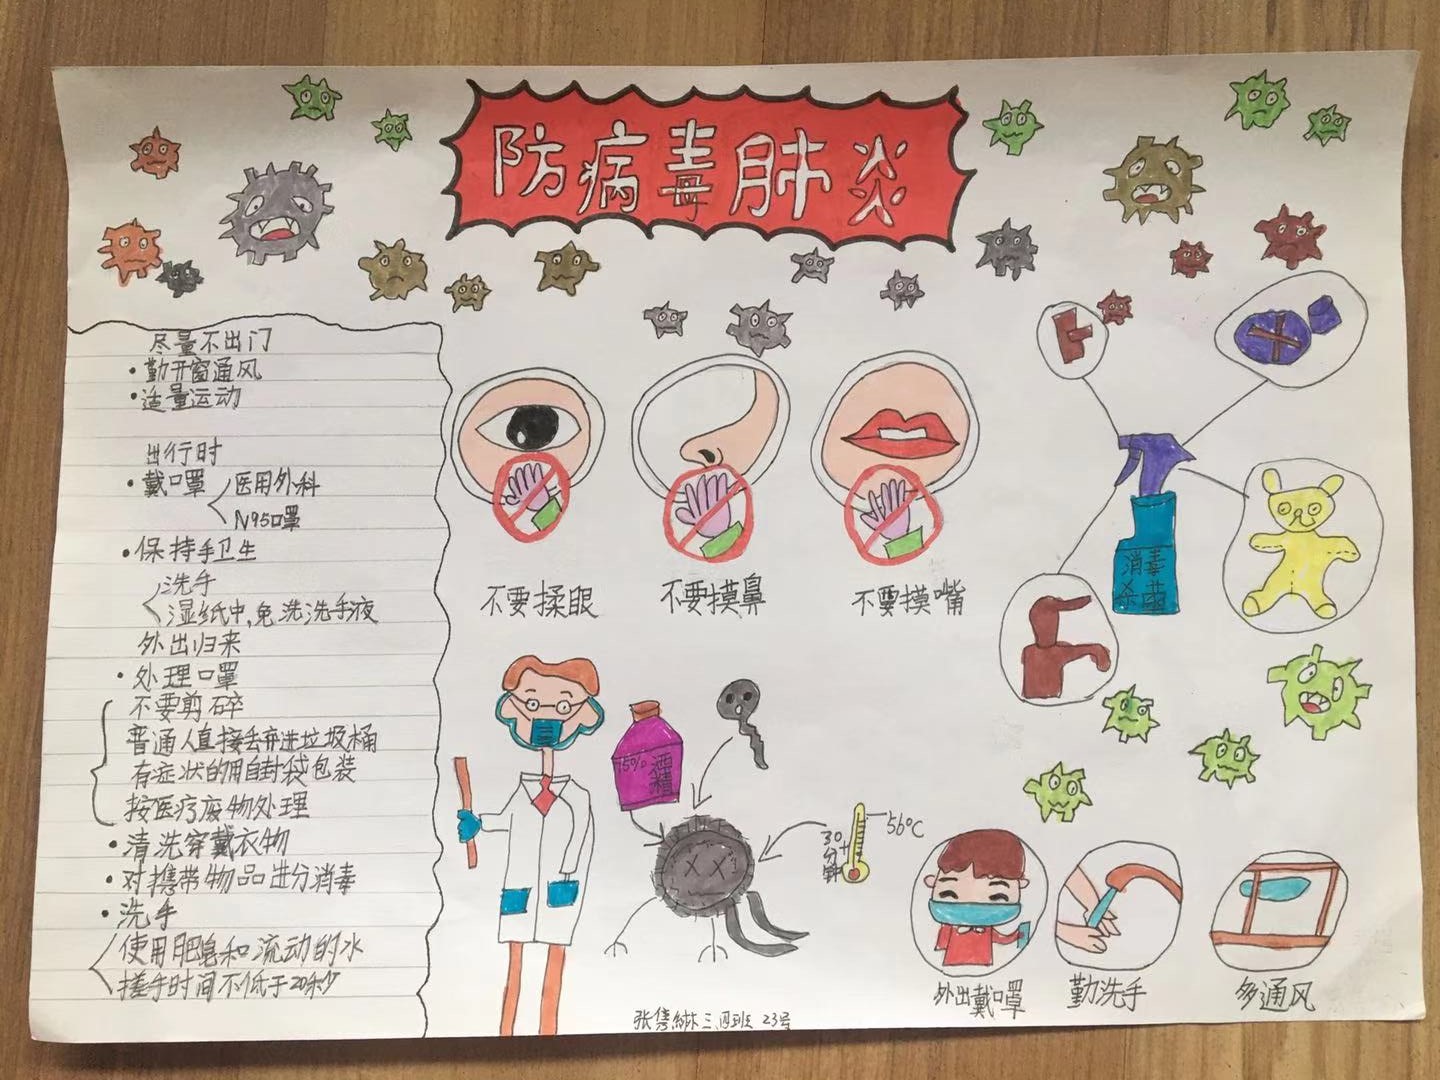 防病毒肺炎
尽量不出门
·勤开窗通风
·适量运动
出行时
·戴口罩
医用外科
N95口罩
·保持手卫生
洗手
湿纸巾,免洗洗手液
外出归来
·处理口罩
不要剪碎
普通人直接丢弃进垃圾桶
有症状的用自封袋包装
按医疗废物处理
·清洗穿戴衣物
·对携带物品进分消毒
·洗手
使用肥皂和流动的水
搓手时间不低于20秒
不要揉眼
不要摸鼻
不要摸嘴
消毒
杀菌
75%
酒精
56℃
30
分钟
外出戴口罩
勤洗手
多通风
三四班 23号